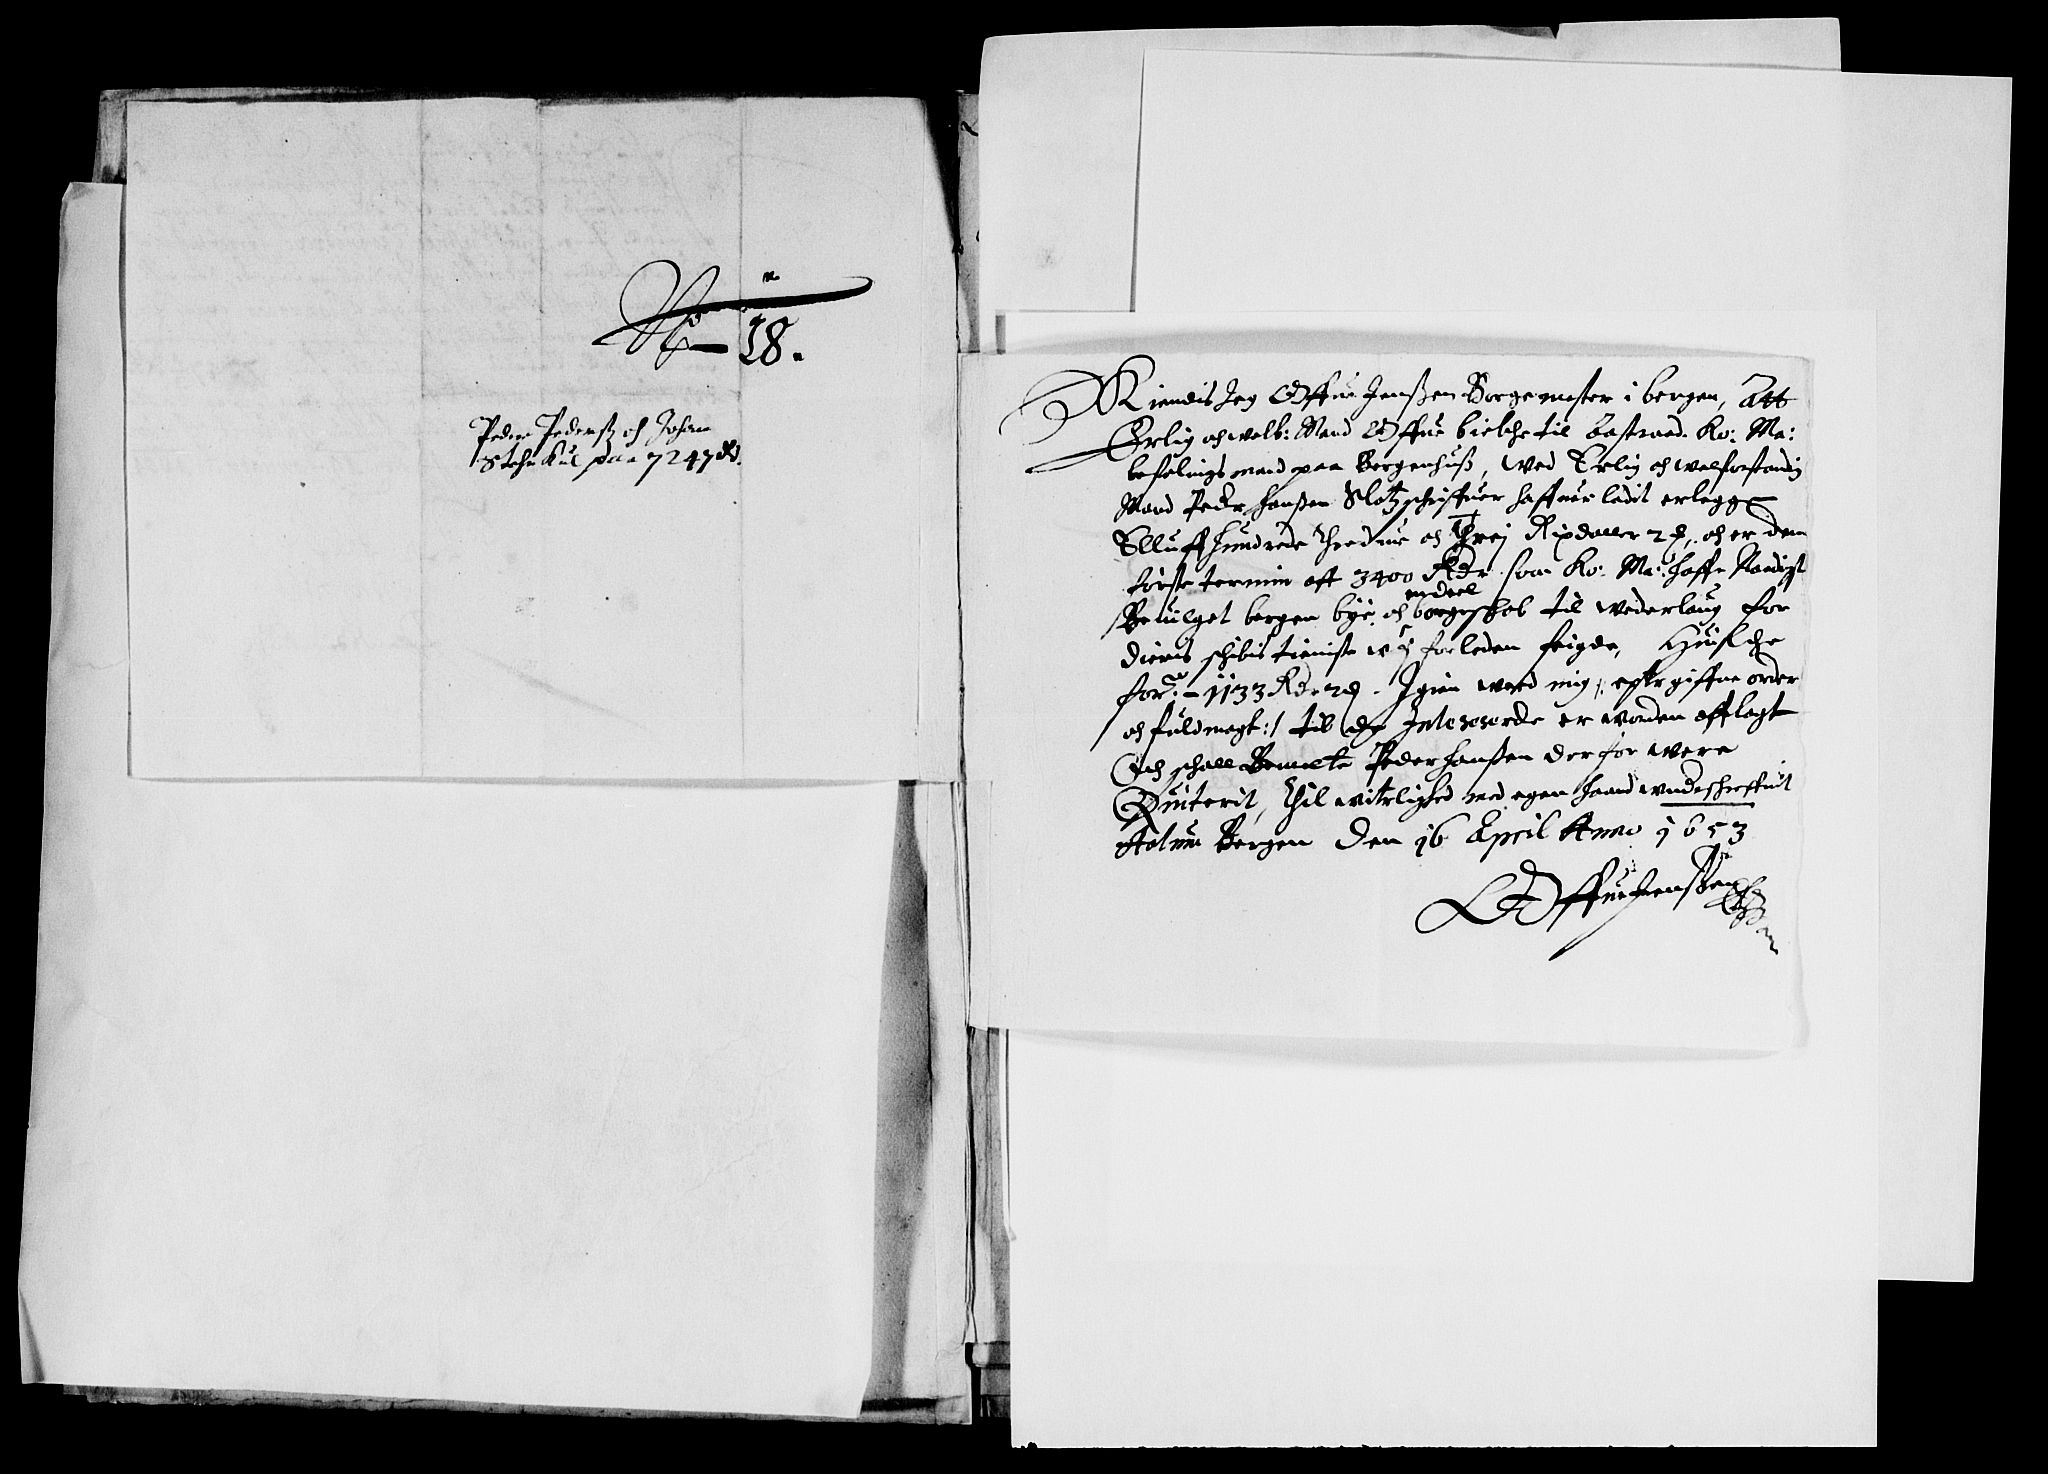 No 18.
Peder Pederß och Johan
Stehnkul paa 7247 Rd.
Kiendis Jeg Offue Jenßen Borgemester i bergen, Att
Erlig och welb: Mand Offue bielche til Østraad Ko: Ma:
befalings mand paa Bergenhuß, Wed Erlig och welforstandig
Mand Peder Hanßen Slotz schriffuer haffuer ladit erlegge
Elluffhundrede thredue och Threj Rixdaller 2 ß, och er den
første termin aff 3400 Rdr som Ko: Ma: haffr Naadigst
Beuilget bergen bye och endeel borgerskab til wederlaug for
dieris schibis tieniste udj forleden feigde, Huilche
forne 1133 Rdr 2 ß. Igien ved mig /: efter giffne order
och fuldmagt :/ til de Interesserde er worden afflagt
Och schall Bemelte Peder Hanßen derfor were
Quiterit, Thil witterlighed med egen haand underschreffuit
Actum Bergen den 16 April Anno 1653
Offue Jenßen